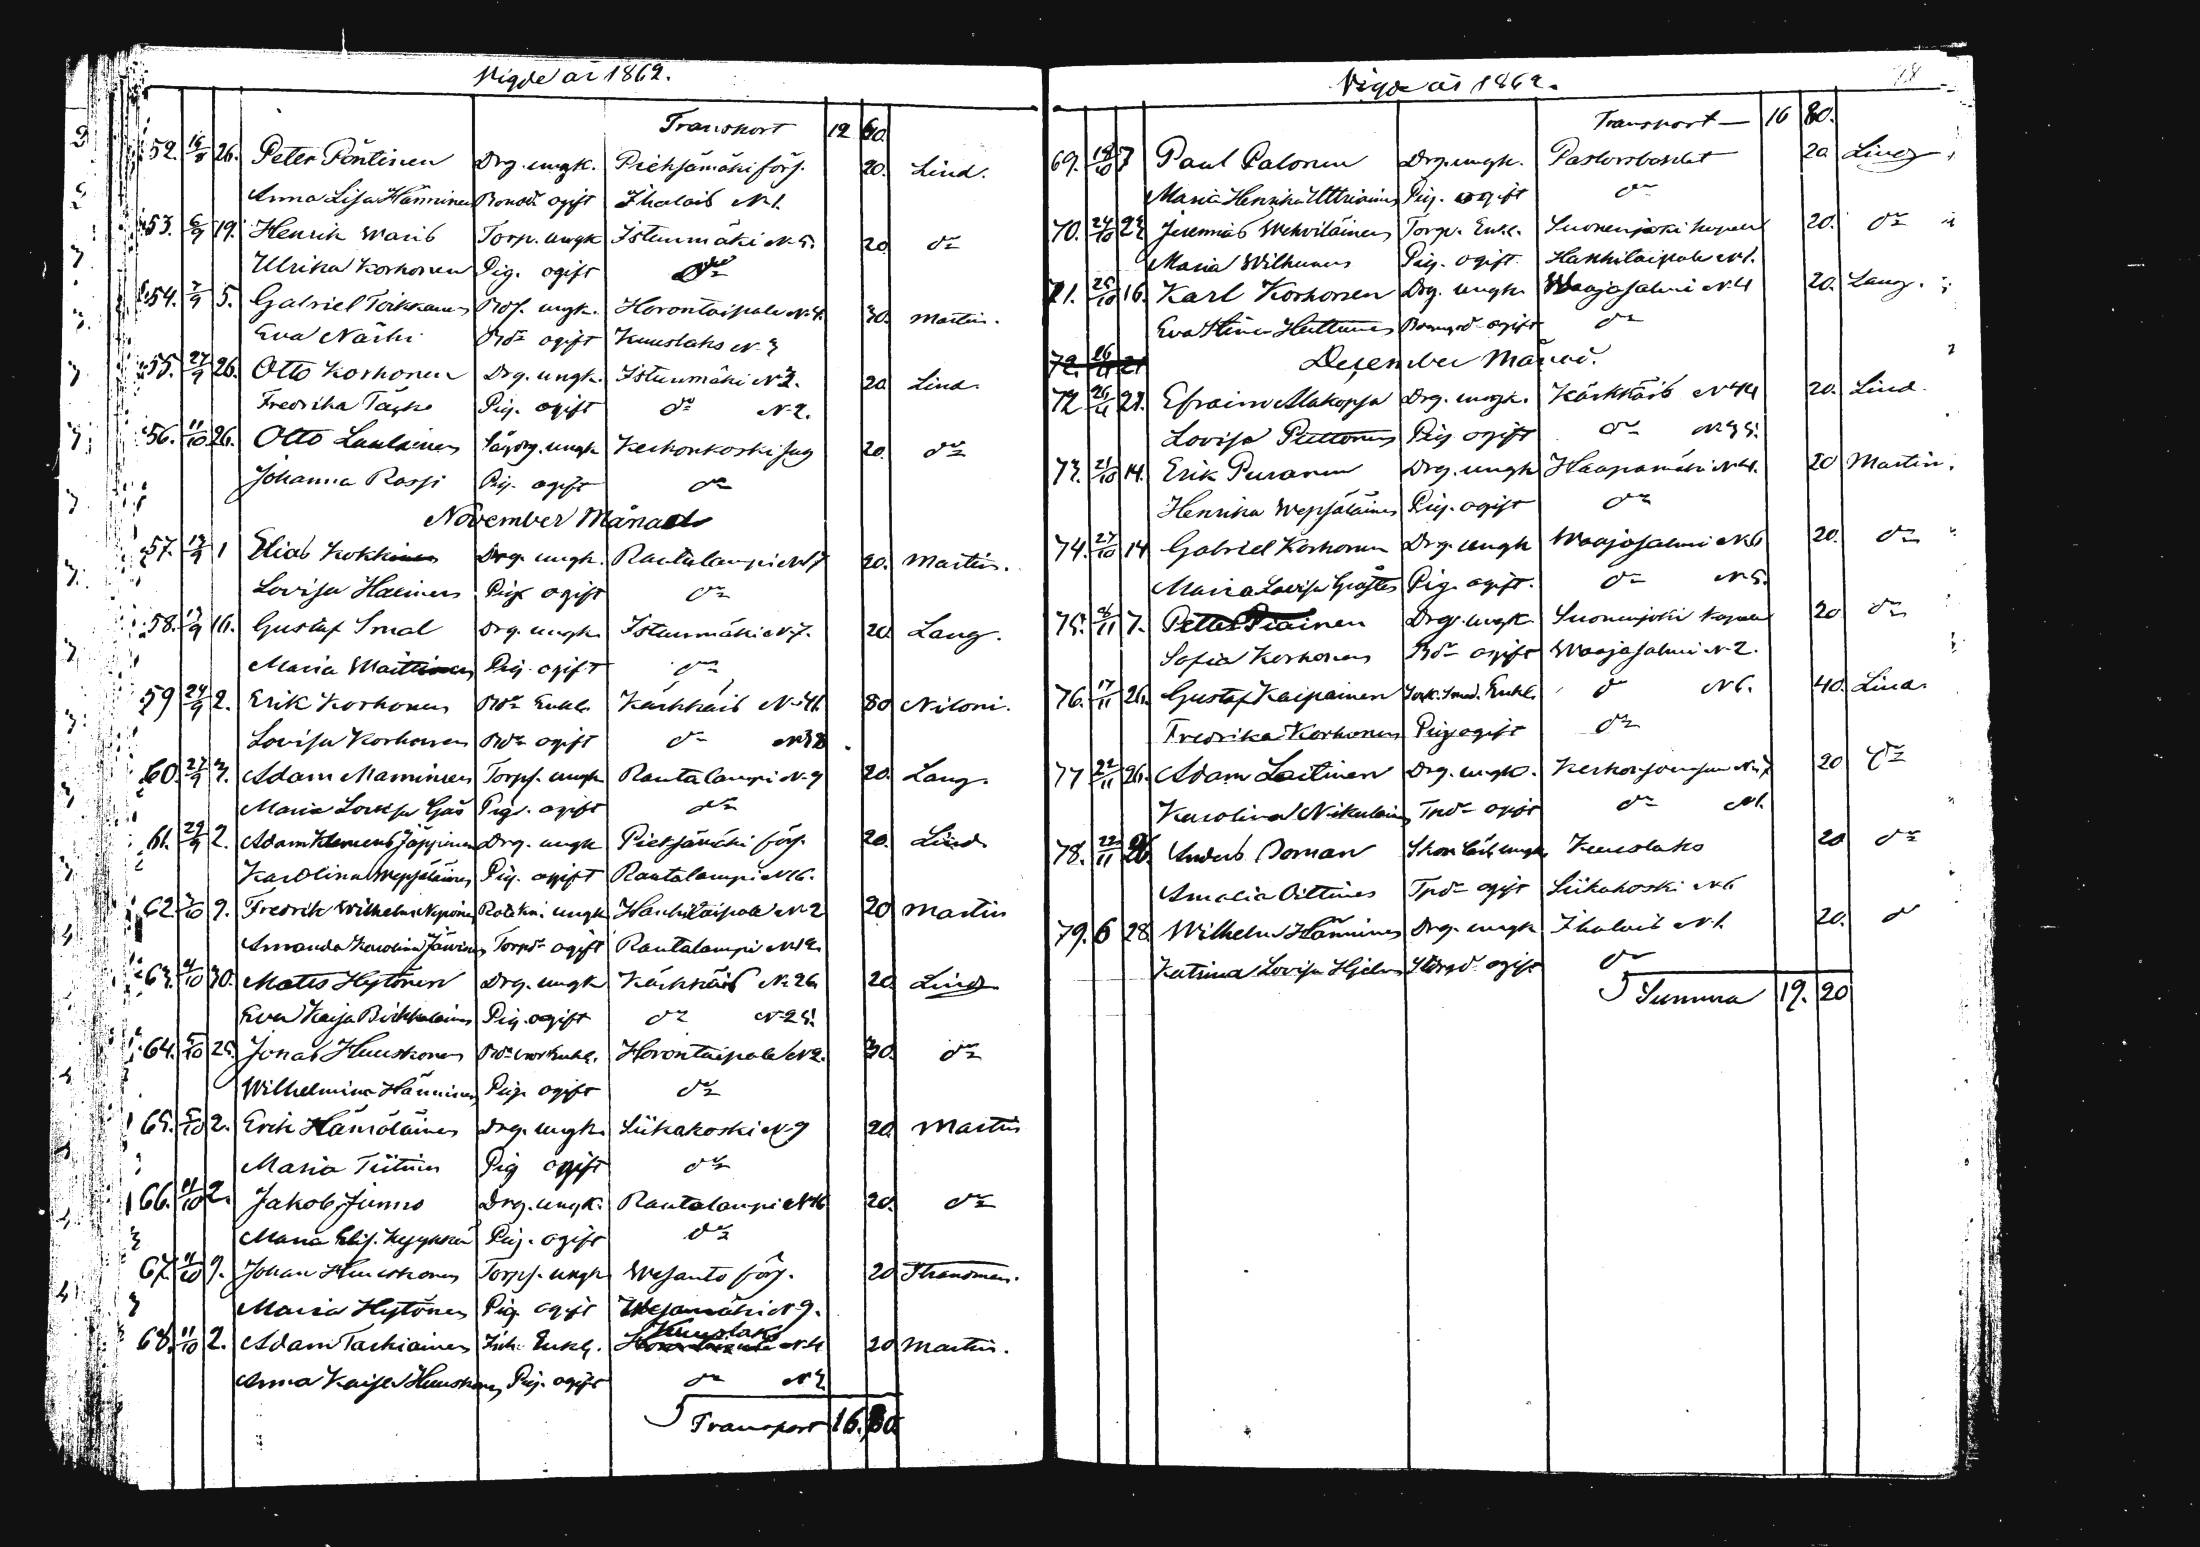 Vigde år 1862.
Transport 12 60.
52. 16/8 26. Peter Pöntinen Drg. ungk. Pieksämäki förs. 20. Lind.
Anna Lisa Hänninen Bondd. ogift Ihalais N1.
53. 6/9 19. Henrik Waris Torp. ungk Istunmäki N 5. 20 do
Ulrika Korhonen Pig. ogift do
54. 7/9 5. Gabriel Toikkanen Bdfs. ungk. Horontaipale N 4. 30. Martin.
Eva Närhi Bdr ogift Kuuslaks N 3
55. 27/9 26. Otto Korhonen Drg. ungk. Istunmäki N 2. 20 Lind.
Fredrika Pig. ogift do N 2.
56. 11/10 26. Otto Laulainen ungk Kerkonkoski såg 20. do
Johanna Rossi Pig. ogift do
November Månad
57. 13/9 1 Elias Kokkinen Drg. ungk. Rautalampi N 17 20. Martin.
Lovisa Halinen Pig. ogift do
58. 13/9 16. Gustaf Smal Drg. ungk. Istunmäki N 7. 20. Lang.
Maria Maittinen Pig. ogift do
59 24/9 2. Erik Korhonen Bdr Enkl. Kärkkäis N 41. 80 Niloni.
Lovisa Korhonen Bdr ogift do N 38
60. 27/9 3. Adam Manninen Torps. ungk Rautalampi N 9 20. Lang.
Maria Lovisa Gås Pig. ogift do
61. 29/9 2. Adam Klemens Jäppinen Drg. ungk Pieksämäki förs. 20. Lind.
Karolina Wepsäläinen Pig. ogift Rautalampi N 16.
62. 3/10 9. Fredrik Wilhelm Nyyssönen ungk Hankitaipale N 2 20 Martin
Amanda Karolina Järvinen Torpd. ogift Rautalampi N 12.
63. 4/10 30. Matts Hytönen Drg. ungk Kärkkäis N 26 20 Lind
Eva Kaisa Pig. ogift do N 25.
64. 5/10 25. Jonas Huuskonen Enkl. Horontaipale N 2. 30. do
Wilhelmina Hänninen Pig. ogift do
65. 5/10 2. Erik Hämäläinen Drg. ungk. Liikakoski N 9 20. Martin
Maria Tiitinen Pig ogift do
66. 11/10 2. Jakob Junno Drg. ungk. Rautalampi N 16 20. do
Maria Elis. Kyykkä Pig. ogift do
67. 11/10 9. Johan Huuskonen Torps. ungk Wesanto förs. 20 Strandman.
Maria Hytönen Pig. ogift Wesamäki N 9.
68. 11/10 2. Adam Tarkiainen Enkl. Kuuslaks N 4 20 Martin.
Anna Kaisa Huuskonen Pig. ogift do N 2
Transport 16. 80.
Vigde år 1862.
Transport 16 80.
69. 18/10 7 Paul Palonen Drg. ungk. Pastorsbostlet 20 Lind
Maria Henrika Uttriainen Pig. ogift do
70. 24/10 23 Jeremias Wehviläinen Torp. Enkl. Suonenjoki kapell 20. do
Maria Wilhunen Pig. ogift. Hankitaipale N 1.
71. 25/10 16. Karl Korhonen Drg. ungk. Waajasalmi N 4 20. Lang.
Eva Stina Huttunen ogift do
72. 26 21
December Månad.
72 26/11 21. Efraim Alakopsa Drg. ungk. Kärkkäis N 44 20. Lind.
Lovisa Puttonen Pig ogift do N 35.
73. 21/10 14. Erik Puranen Drg. ungk Haapamäki N 4. 20 Martin.
Henrika Wepsäläinen Pig. ogift do
74. 27/10 14 Gabriel Korhonen Drg. ungk Waajasalmi N 6 20. do
Maria Lovisa Pig. ogift. do N 5.
75. /11 7. Petter Piainen Drg. ungk. Suonenjoki kapell 20 do
Sofia Korhonen Bdr ogift Waajasalmi N 2.
76. 17/11 26. Gustaf Kaipainen Enkl. do N 6. 40. Lind.
Fredrika Korhonen Pig ogift do
77 22/11 26. Adam Laitinen Drg. ungk. N 7 20 do
Karolina Nikulainen Tpdr ogift do N 1.
78. 22/11 26. Anders Boman ungk Kuuslaks 20 do
Amalia Oittinen Tpdr ogift Liikakoski N 6
79. 6 28 Wilhelm Hänninen Drg. ungk Ihalais N 1. 20. do
Katrina Lovisa Hjelm ogift do
Summa 19. 20